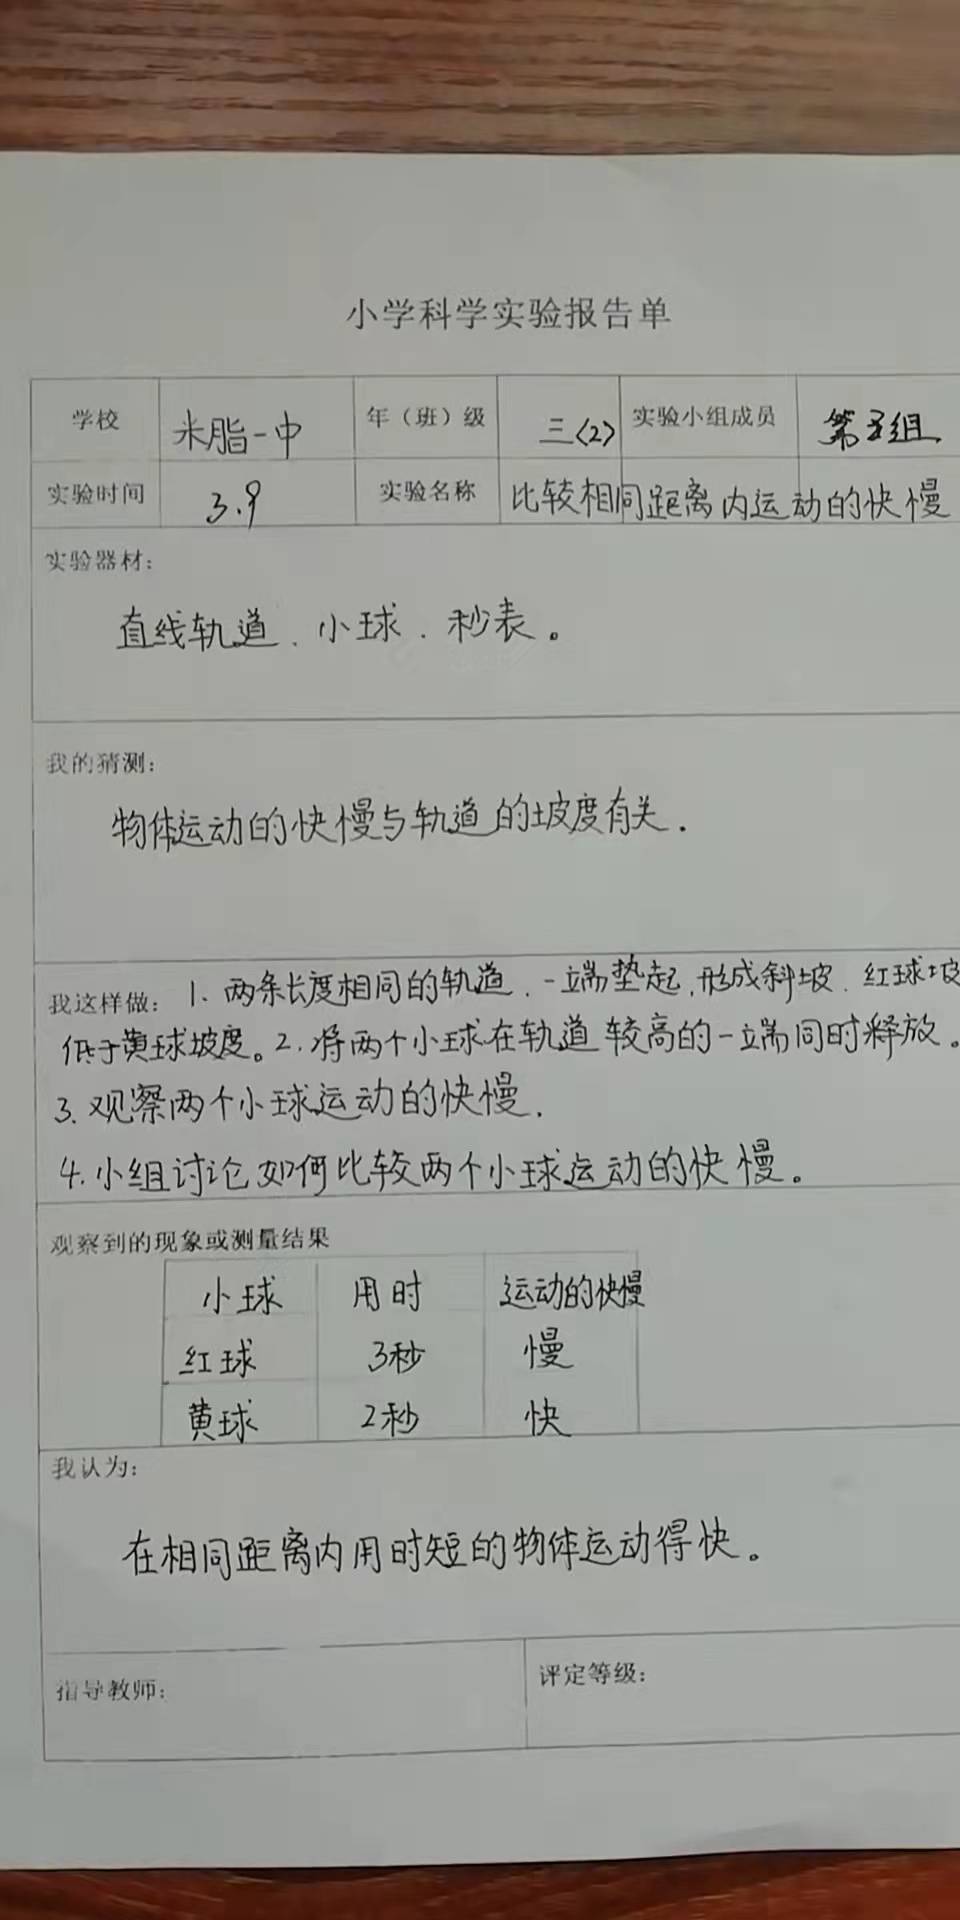 小学科学实验报告单
学校 米脂一中 年（班）级 三(2) 实验小组成员 第五组
实验时间 3.9 实验名称 比较相同距离内运动的快慢
实验器材：
直线轨道、小球、秒表。
我的猜测：
物体运动的快慢与轨道的坡度有关.
我这样做：1. 两条长度相同的轨道.一端垫起,形成斜坡.红球坡
低于黄球坡度。2.将两个小球在轨道较高的一端同时释放。
3.观察两个小球运动的快慢.
4.小组讨论如何比较两个小球运动的快慢。
观察到的现象或测量结果
小球 用时 运动的快慢
红球 3秒 慢
黄球 2秒 快
我认为：
在相同距离内用时短的物体运动得快。
指导教师： 评定等级：